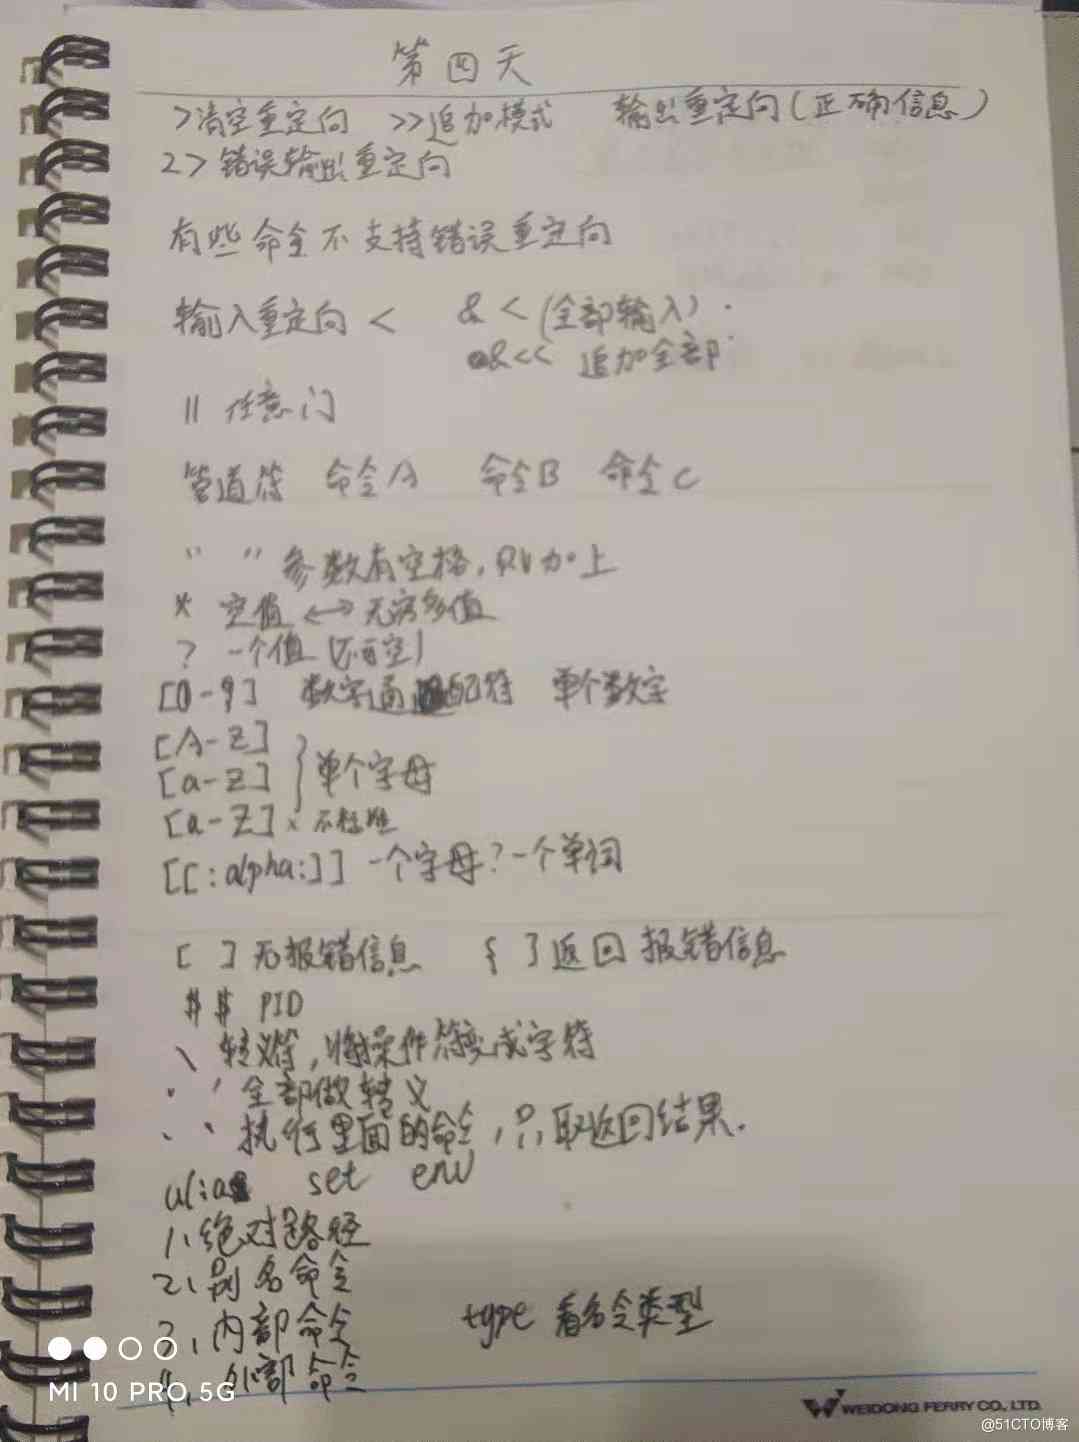 第四天
>清空重定向 >>追加模式 输出重定向(正确信息)
2> 错误输出重定向
有些命令不支持错误重定向
输入重定向 < & < (全部输入)
&<< 追加全部
|| 任意门
管道符 命令A 命令B 命令C
" " 参数有空格,可以加上
* 空值 <-> 无穷多值
? 一个值 (不可空)
[0-9] 数字通配符 单个数字
[A-Z]
[a-z] } 单个字母
[a-Z] × 不标准
[[:alpha:]] 一个字母?一个单词
[ ] 无报错信息 { } 返回报错信息
$$ PID
\ 转义符,将操作符变成字符
' ' 全部做转义
` ` 执行里面的命令,只取返回结果.
alias set env
1、绝对路径
2、别名命令
3、内部命令 type 看命令类型
4、外部命令
MI 10 PRO 5G
WEIDONG FERRY CO., LTD.
@51CTO博客